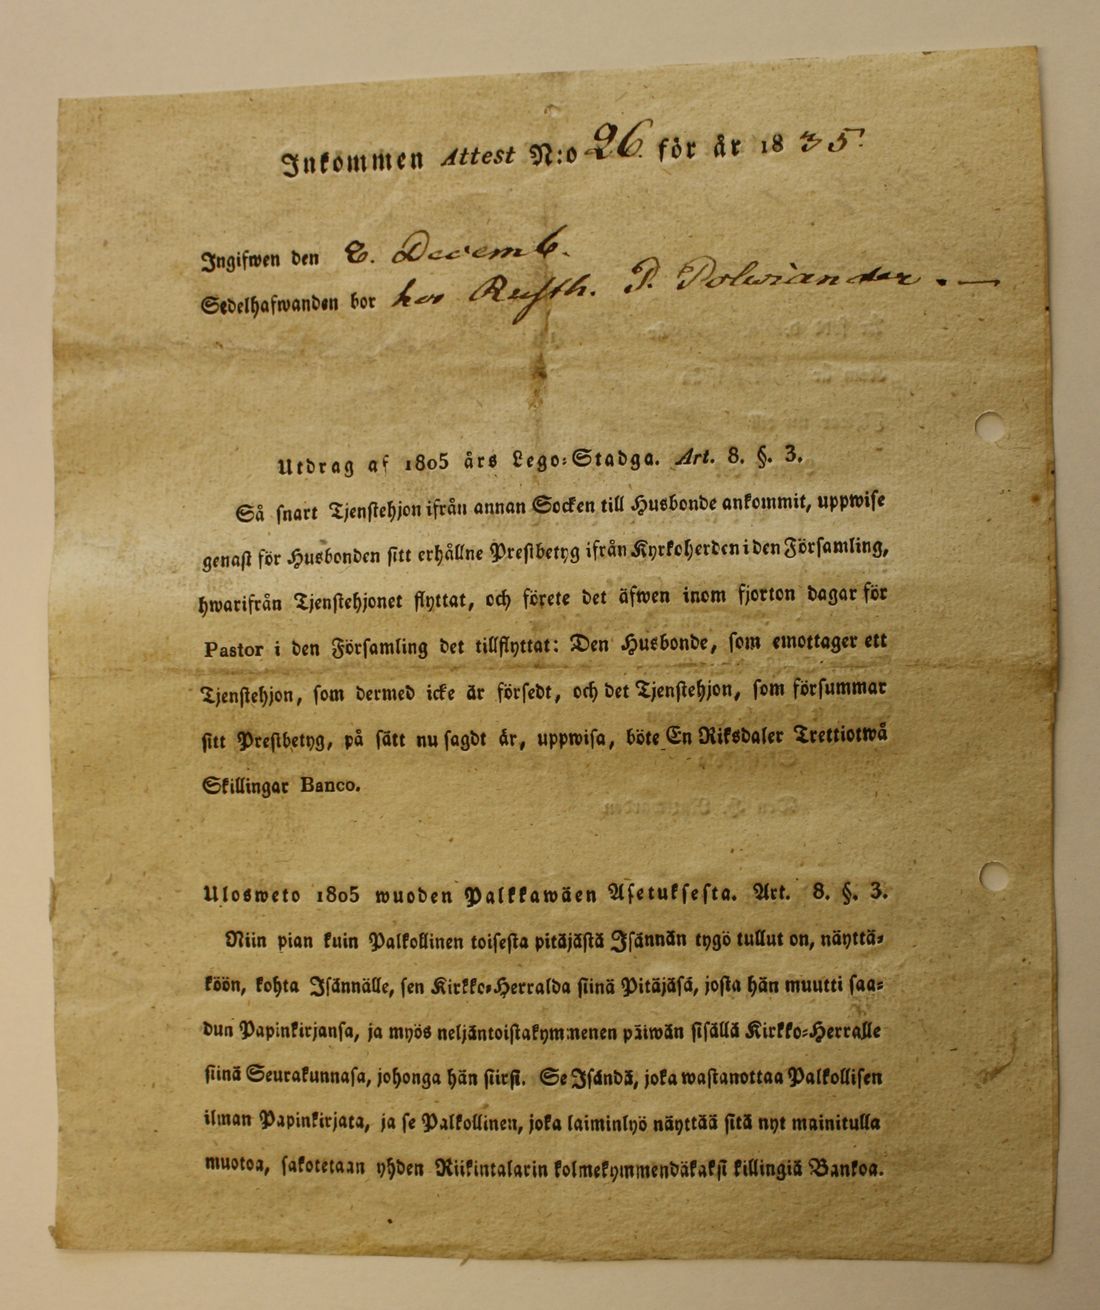 Inkommen Attest N:o 26. för år 1835.
Ingifwen den 8. Decemb.
Sedelhafwanden bor hos Rusth. P. Polviander. —
Utdrag af 1805 års Lego-Stadga. Art. 8. §. 3.
Så snart Tjenstehjon ifrån annan Socken till Husbonde ankommit, uppwise
genast för Husbonden sitt erhållne Prestbetyg ifrån Kyrkoherden i den Församling,
hwarifrån Tjenstehjonet flyttat, och förete det äfwen inom fjorton dagar för
Pastor i den Församling det tillflyttat: Den Husbonde, som emottager ett
Tjenstehjon, som dermed icke är försedt, och det Tjenstehjon, som försummar
sitt Prestbetyg, på sätt nu sagdt är, uppwisa, böte En Riksdaler Trettiotwå
Skillingar Banco.
Ulosweto 1805 wuoden Palkkawäen Asetuksesta. Art. 8. §. 3.
Niin pian kuin Palkollinen toisesta pitäjästä Isännän tygö tullut on, näyttä-
köön, kohta Isännälle, sen Kirkko-Herralda siinä Pitäjäsä, josta hän muutti saa-
dun Papinkirjansa, ja myös neljäntoistakymmenen päiwän sisällä Kirkko-Herralle
siinä Seurakunnasa, johonga hän siirsi. Se Isändä, joka wastanottaa Palkollisen
ilman Papinkirjata, ja se Palkollinen, joka laiminlyö näyttää sitä nyt mainitulla
muotoa, sakotetaan yhden Riikintalarin kolmekymmendäkaksi killingiä Bankoa.